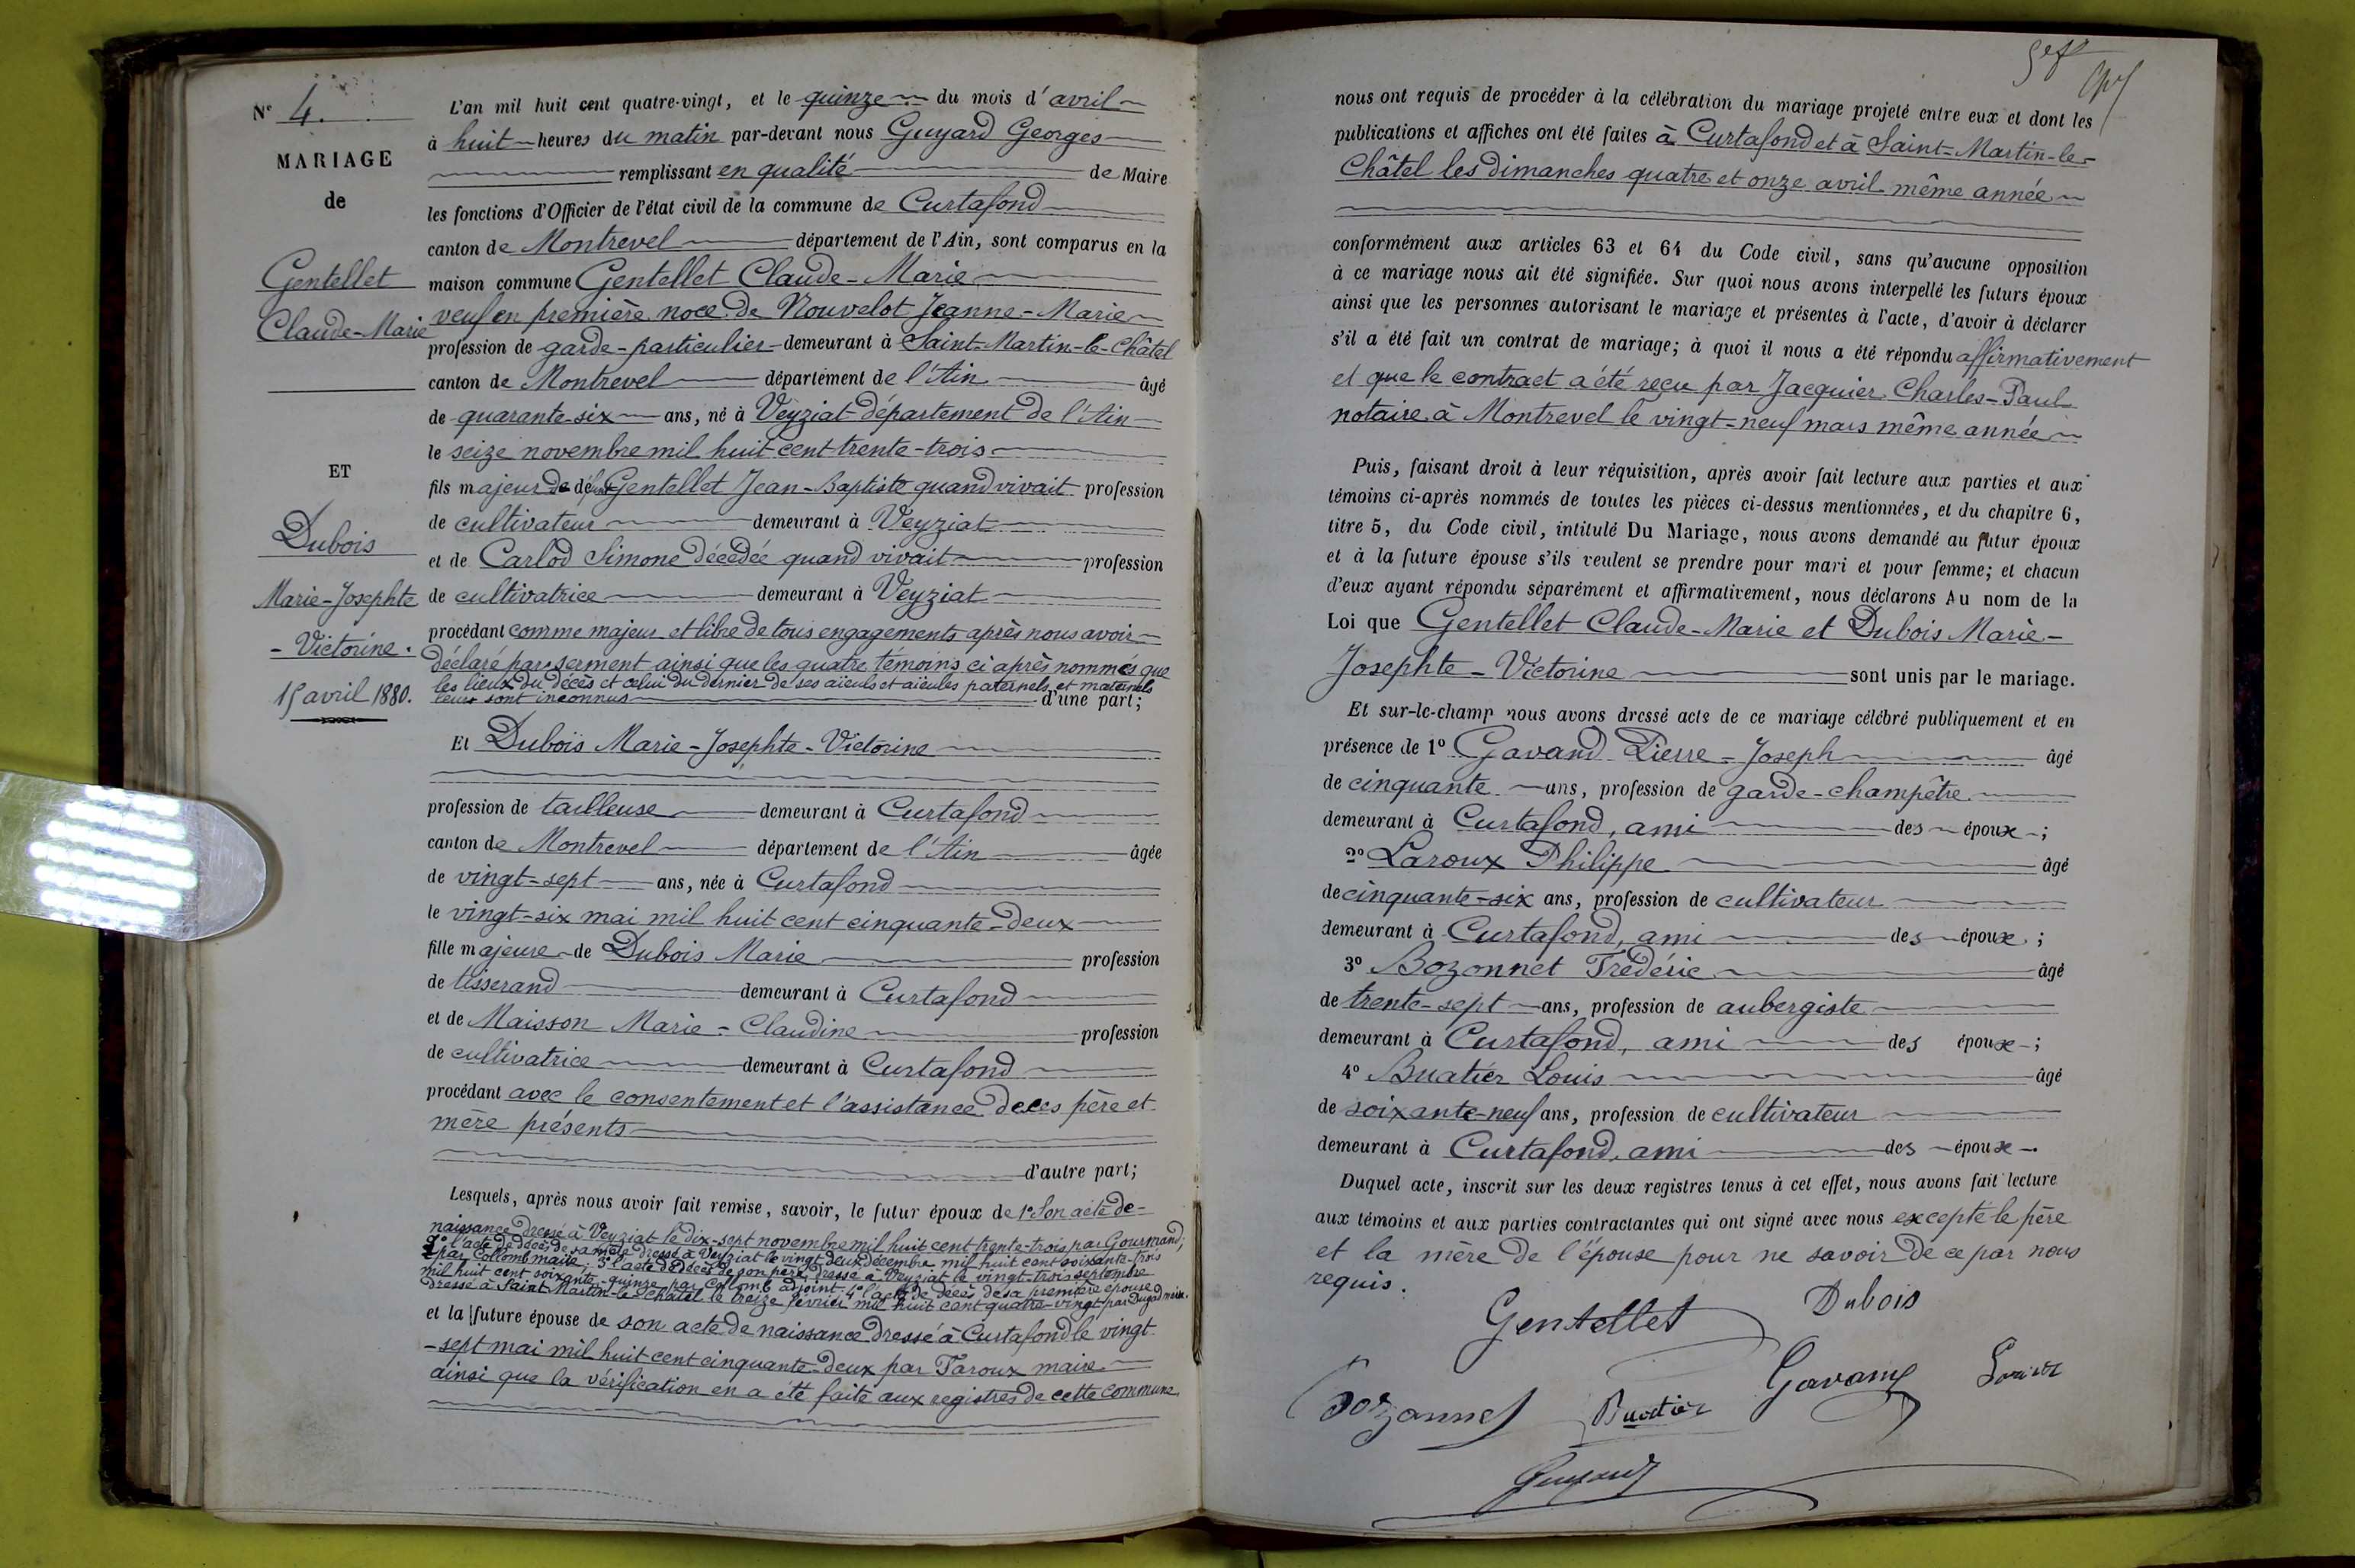 N° 4.
MARIAGE
de
Gentellet
Claude-Marie
ET
Dubois
Marie-Josephte
- Victorine.
15 avril 1880.
L'an mil huit cent quatre-vingt, et le quinze du mois d'avril
à huit heures du matin par-devant nous Guyard Georges
remplissant en qualité de Maire
les fonctions d'Officier de l'état civil de la commune de Curtafond
canton de Montrevel département de l'Ain, sont comparus en la
maison commune Gentellet Claude-Marie
veuf en première noce de Nouvelot Jeanne-Marie
profession de garde-particulier demeurant à Saint-Martin-le-Châtel
canton de Montrevel département de l'Ain âgé
de quarante-six ans, né à Veyziat département de l'Ain
le seize novembre mil huit cent trente-trois
fils majeur de défunt Gentellet Jean-Baptiste quand vivait profession
de cultivateur demeurant à Veyziat
et de Carlod Simone décédée quand vivait profession
de cultivatrice demeurant à Veyziat
procédant comme majeur et libre de tous engagements après nous avoir
déclaré par serment ainsi que les quatre témoins ci après nommés que
les lieux du décès et celui du dernier de ses aïeuls et aïeules paternels et maternels
leurs sont inconnus d'une part;
Et Dubois Marie-Josephte-Victorine
profession de tailleuse demeurant à Curtafond
canton de Montrevel département de l'Ain âgée
de vingt-sept ans, née à Curtafond
le vingt-six mai mil huit cent cinquante-deux
fille majeure de Dubois Marie profession
de tisserand demeurant à Curtafond
et de Maisson Marie-Claudine profession
de cultivatrice demeurant à Curtafond
procédant avec le consentement et l'assistance de ces père et
mère présents
d'autre part;
Lesquels, après nous avoir fait remise, savoir, le futur époux de 1° Son acte de
naissance dressé à Veyziat le dix-sept novembre mil huit cent trente-trois par Gourmand;
2° l'acte de décès de sa mère dressé à Veyziat le vingt-deux décembre mil huit cent soixante-trois
par Collomb maire; 3° l'acte de décès de son père dressé à Veyziat le vingt-trois septembre
mil huit cent soixante-quinze par Collomb adjoint 4° l'acte de décès de sa première épouse
dressé à Saint Martin-le-Châtel le treize février mil huit cent quatre-vingt par Dugad maire.
et la future épouse de son acte de naissance dressé à Curtafond le vingt
-sept mai mil huit cent cinquante-deux par Taroux maire
ainsi que la vérification en a été faite aux registres de cette commune.
nous ont requis de procéder à la célébration du mariage projeté entre eux et dont les
publications et affiches ont été faites à Curtafond et à Saint-Martin-le-
Châtel les dimanches quatre et onze avril même année
conformément aux articles 63 et 64 du Code civil, sans qu'aucune opposition
à ce mariage nous ait été signifiée. Sur quoi nous avons interpellé les futurs époux
ainsi que les personnes autorisant le mariage et présentes à l'acte, d'avoir à déclarer
s'il a été fait un contrat de mariage; à quoi il nous a été répondu affirmativement
et que le contract a été reçu par Jacquier Charles-Paul
notaire à Montrevel le vingt-neuf mars même année
Puis, faisant droit à leur réquisition, après avoir fait lecture aux parties et aux
témoins ci-après nommés de toutes les pièces ci-dessus mentionnées, et du chapitre 6,
titre 5, du Code civil, intitulé Du Mariage, nous avons demandé au futur époux
et à la future épouse s'ils veulent se prendre pour mari et pour femme; et chacun
d'eux ayant répondu séparément et affirmativement, nous déclarons Au nom de la
Loi que Gentellet Claude-Marie et Dubois Marie-
Josephte-Victorine sont unis par le mariage.
Et sur-le-champ nous avons dressé acte de ce mariage célébré publiquement et en
présence de 1° Gavand Pierre-Joseph âgé
de cinquante ans, profession de garde-champêtre
demeurant à Curtafond, ami des époux;
2° Laroux Philippe âgé
de cinquante-six ans, profession de cultivateur
demeurant à Curtafond, ami des époux;
3° Bozonnet Frédéric âgé
de trente-sept ans, profession de aubergiste
demeurant à Curtafond, ami des époux;
4° Buatier Louis âgé
de soixante-neuf ans, profession de cultivateur
demeurant à Curtafond, ami des époux.
Duquel acte, inscrit sur les deux registres tenus à cet effet, nous avons fait lecture
aux témoins et aux parties contractantes qui ont signé avec nous excepté le père
et la mère de l'épouse pour ne savoir de ce par nous
requis.
Gentellet Dubois
Bozonnet Buatier Gavand
Guyard